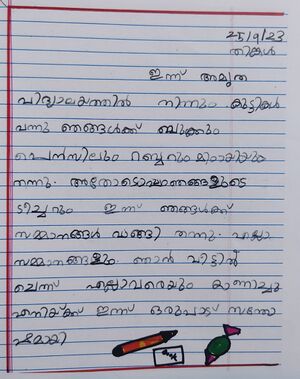 25/9/23
തിങ്കൾ
ഇന്ന് അമൃത
വിദ്യാലയത്തിൽ നിന്നും കുട്ടികൾ
വന്നു ഞങ്ങൾക്ക് ബുക്കും
പെൻസിലും റബ്ബറും മിഠായിയും
തന്നു. അതോടൊപ്പം ഞങ്ങളുടെ
ടീച്ചറും ഇന്ന് ഞങ്ങൾക്ക്
സമ്മാനങ്ങൾ വാങ്ങി തന്നു. എല്ലാ
സമ്മാനങ്ങളും ഞാൻ വീട്ടിൽ
ചെന്ന് എല്ലാവരെയും കാണിച്ചു
എനിയ്ക്ക് ഇന്ന് ഒരുപാട് സന്തോ
ഷമായി